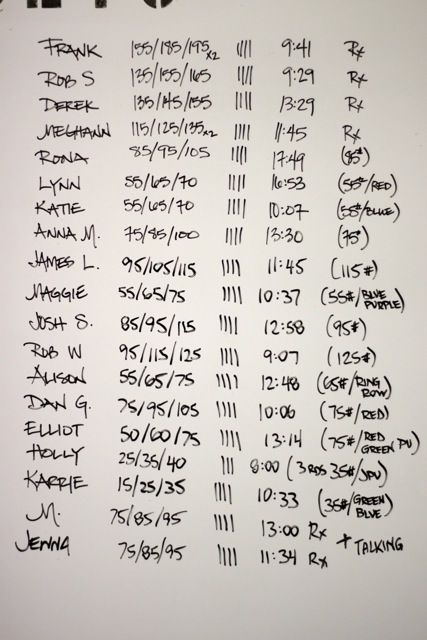 FRANK 155/185/195x2 |||| 9:41 Rx
ROB S 135/155/165 |||| 9:29 Rx
DEREK 135/145/155 |||| 13:29 Rx
MEGHANN 115/125/135x2 |||| 11:45 Rx
RONA 85/95/105 |||| 17:49 (85#)
LYNN 55/65/70 |||| 16:53 (55#/RED)
KATIE 55/65/70 |||| 10:07 (55#/BLUE)
ANNA M. 75/85/100 |||| 13:30 (75#)
JAMES L. 95/105/115 |||| 11:45 (115#)
MAGGIE 55/65/75 |||| 10:37 (55#/BLUE PURPLE)
JOSH S. 85/95/115 |||| 12:58 (95#)
ROB W 95/115/125 |||| 9:07 (125#)
ALISON 55/65/75 |||| 12:48 (65#/RING ROW)
DAN G. 75/95/105 |||| 10:06 (75#/RED)
ELLIOT 50/60/75 |||| 13:14 (75#/RED GREEN PU)
HOLLY 25/35/40 ||| 8:00 (3 RDS 35#/JPU)
KARRIE 15/25/35 |||| 10:33 (35#/GREEN BLUE)
M. 75/85/95 |||| 13:00 Rx + TALKING
JENNA 75/85/95 |||| 11:34 Rx